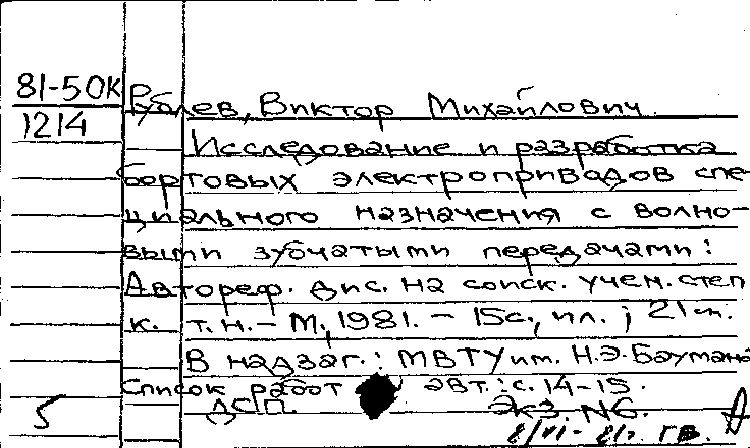 81-50К Рублев, Виктор Михайлович
1214
Исследование и разработка
бортовых электроприводов спе-
циального назначения с волно-
выми зубчатыми передачами:
Автореф. дис. на соиск. учен. степ
к. т. н. - М., 1981. - 15с., ил. ; 21см.
В надзаг.: МВТУ им. Н.Э. Баумана
Список работ авт.: с. 14-15.
5 ДСП. Экз. N6.